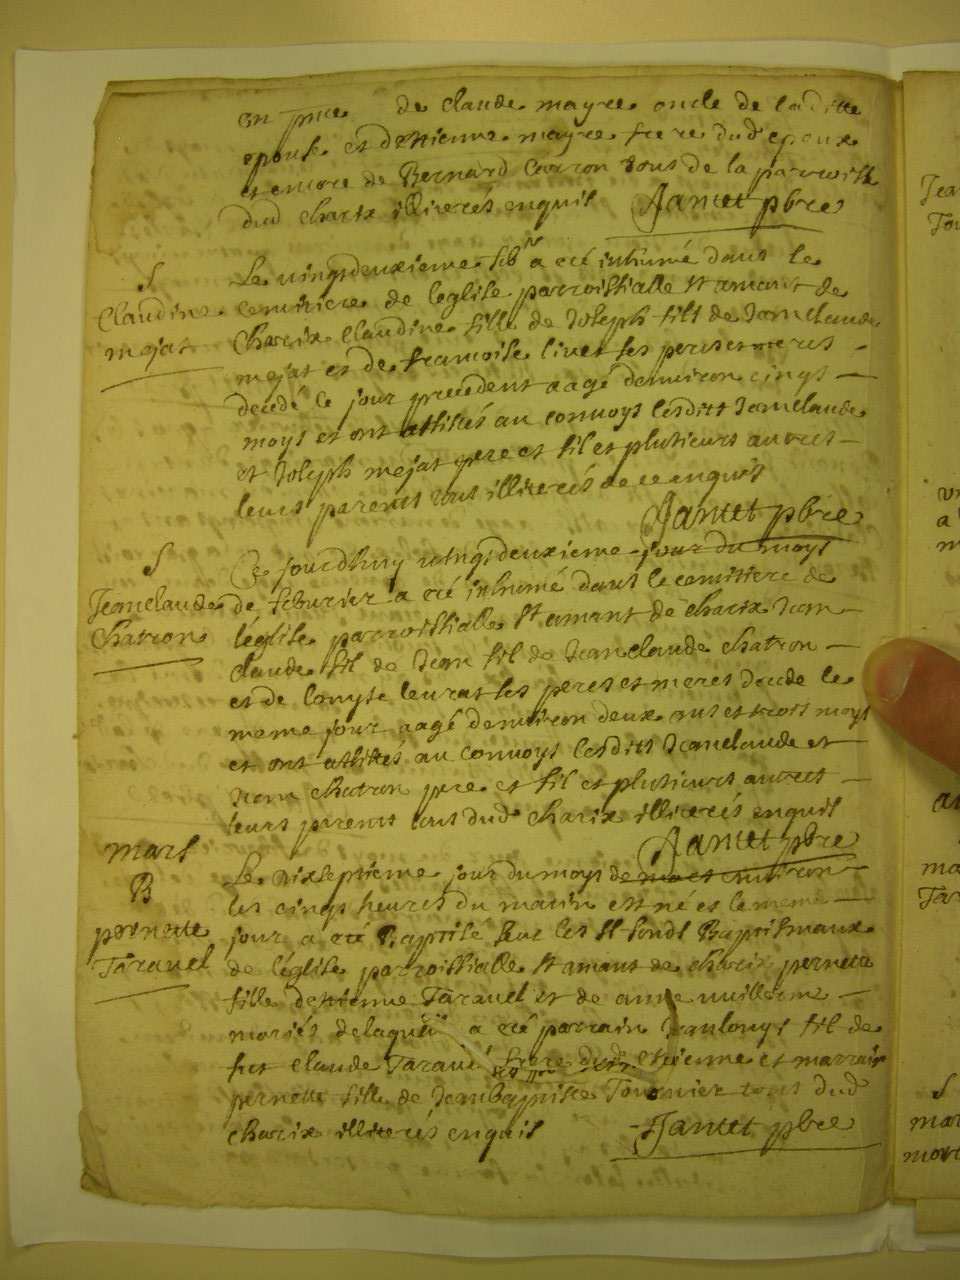 en pnce de claude mayre oncle de laditte
epouse et d'Estienne mayre frere dud epoux
et encore de Bernard Carron tous de la parroisse
dud charix illiterés enquis Jantet pbre
S
Claudine
mejat
Le vingtdeuxieme febr a eté inhumé dans le
cemitiere de leglise parroissialle st amant de
Charix Claudine fille de Joseph fils de Jeanclaude
mejat et de francoise livet ses peres et meres
decedé le jour precedent aagé denviron cinqs
moys et ont assistés au convoys lesdits Jeanclaude
et Joseph mejat pere et fil et plusieurs autres
leurs parents tous illiterés de ce enquis
Jantet pbre
S
Jeanclaude
Chatron
Ce jourdhuy vingtdeuxieme jour du moys
de feburier a eté inhumé dans le cemitiere de
léglise parroissialle st amant de charix Jean
claude fil de Jean fil de Jeanclaude chatron
et de louyse leurat ses peres et meres decede le
meme jour aagé denviron deux ans et trois moys
et ont assistés au convoys lesdits Jeanclaude et
Jean chatron pere et fil et plusieurs autres
leurs parents tous dud charix illiterés enquis
Jantet pbre
mars
B
pernette
Taravel
Le dixseptieme jour du moys de mars environ
les cinqs heures du matin est né et le meme
jour a eté Baptisé sur les st fonds Baptismaux
de léglise parroissialle st amant de charix pernette
fille destienne Taravel et de anne vuillerme
mariés delaquel a eté parrain Jeanlouys fil de
fut claude Taravel frere dud estienne et marrain
pernette fille de Jeanbaptiste Tournier tous dud
charix illiterés enquis Jantet pbre